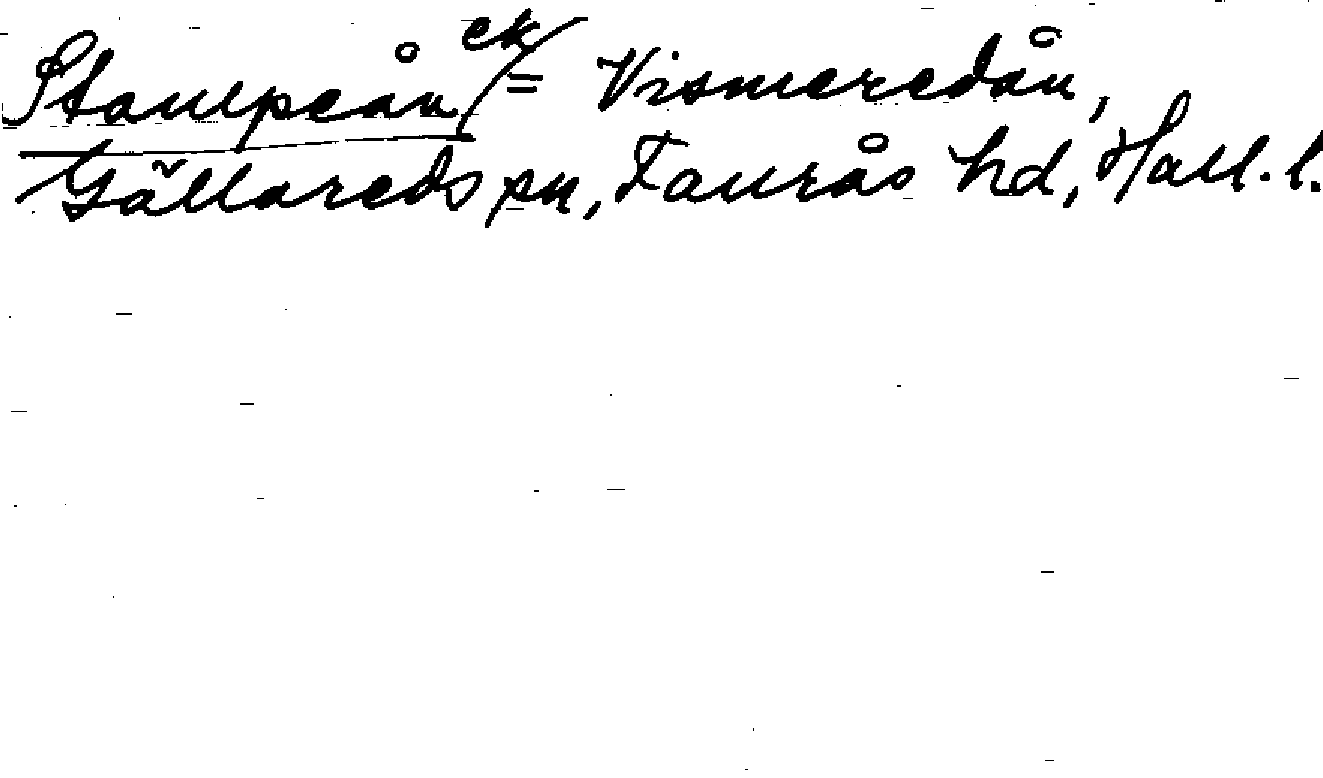 Stampeån ek/ = Vismeredån,
Gällareds sn, Faurås hd, Hall. l.